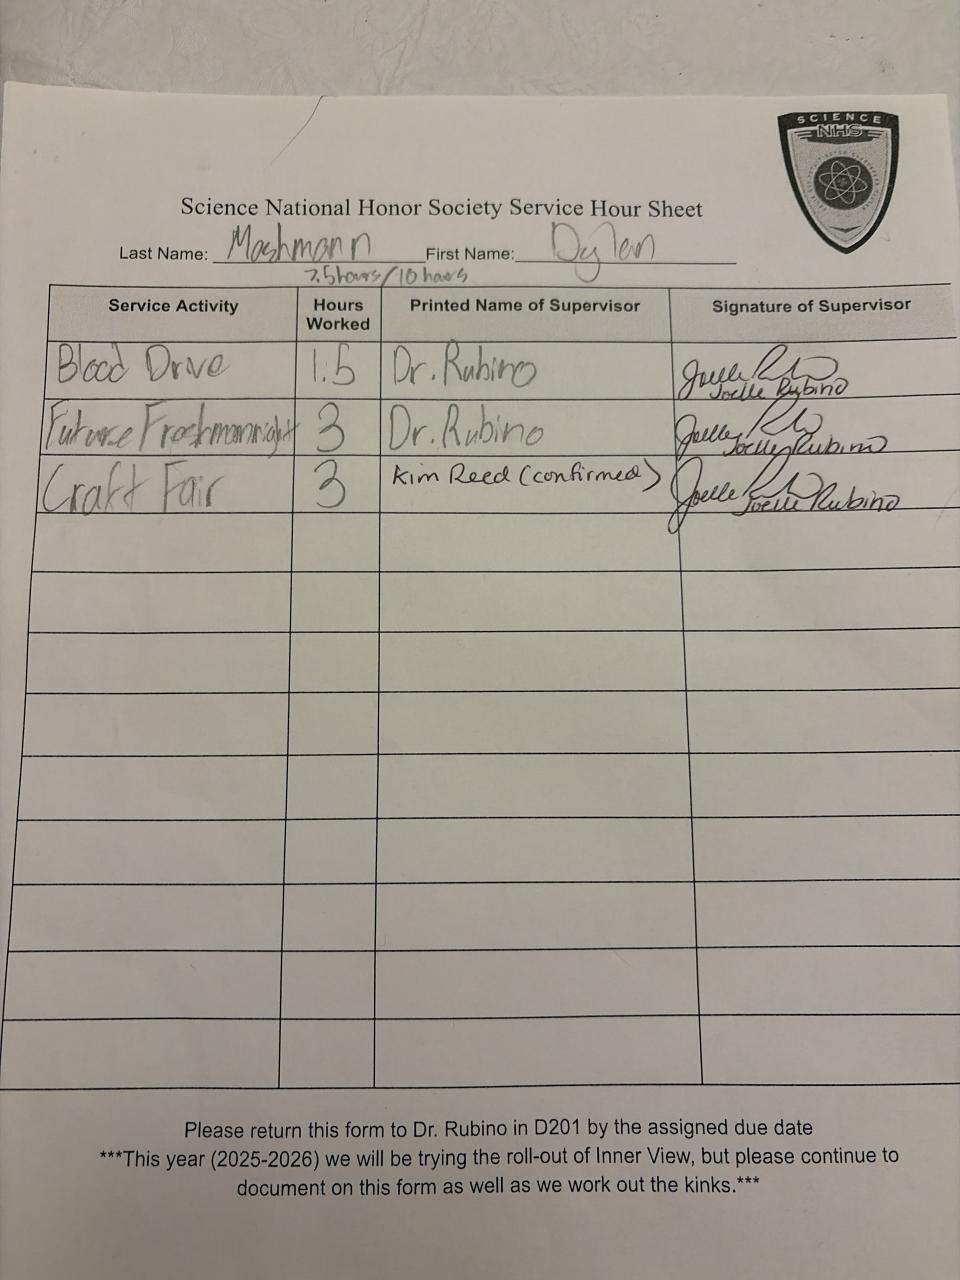 SCIENCE
NHS
Science National Honor Society Service Hour Sheet
Last Name: Moshmann First Name: Dylan
7.5hours/10 hours
Service Activity Hours Worked Printed Name of Supervisor Signature of Supervisor
Blood Drive 1.5 Dr. Rubino Joelle Rubino
Future Freshman night 3 Dr. Rubino Joelle Rubino
Craft Fair 3 Kim Reed (confirmed) Joelle Rubino
Please return this form to Dr. Rubino in D201 by the assigned due date
***This year (2025-2026) we will be trying the roll-out of Inner View, but please continue to
document on this form as well as we work out the kinks.***